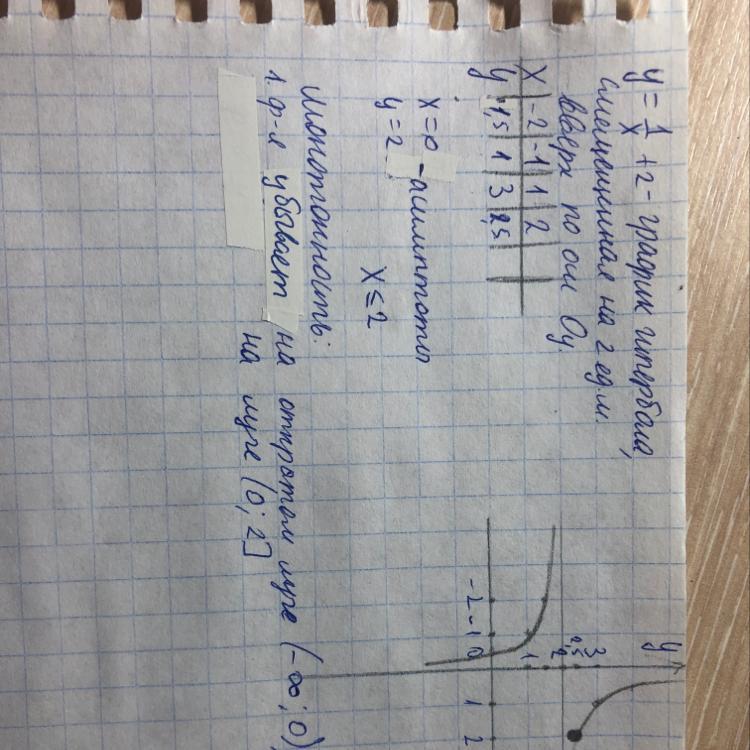 y = 1/x + 2 - график гипербола,
смещенная на 2 ед.м.
вверх по оси Oy.
x -2 -1 1 2
y 1,5 1 3 2,5
x=0 - асимптоты
y=2
x ≤ 2
Монотонность:
1. ф-я убывает на открытом луче (-∞; 0),
на луче (0; 2]
y
3
2,5
2
1
-2 -1 0 1 2